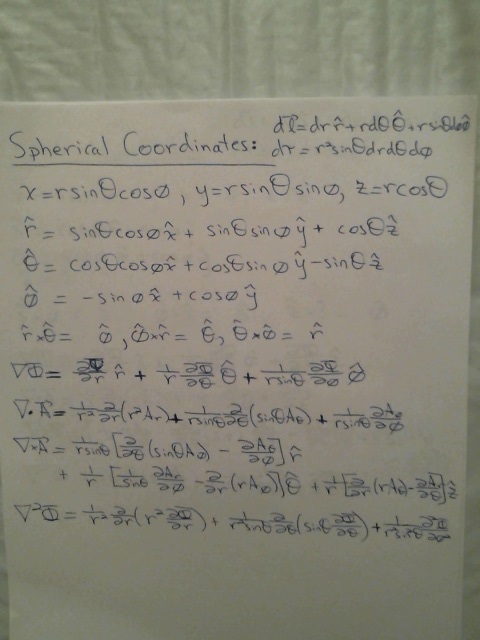 dl⃗=dr r̂+rdθ θ̂+r sinθdφ φ̂
Spherical Coordinates: dτ=r²sinθdrdθdφ
x=rsinθcosφ, y=rsinθsinφ, z=rcosθ
r̂= sinθcosφx̂+ sinθsinφŷ+ cosθẑ
θ̂= cosθcosφx̂+cosθsinφŷ-sinθẑ
φ̂ = -sinφx̂+cosφŷ
r̂×θ̂= φ̂, φ̂×r̂= θ̂, θ̂×φ̂= r̂
∇Φ= ∂Φ/∂r r̂ + 1/r ∂Φ/∂θ θ̂ + 1/rsinθ ∂Φ/∂φ φ̂
∇·A⃗= 1/r² ∂/∂r(r²Ar)+ 1/rsinθ ∂/∂θ(sinθAθ) + 1/rsinθ ∂Aφ/∂φ
∇×A⃗= 1/rsinθ [∂/∂θ(sinθAφ) - ∂Aθ/∂φ]r̂
+ 1/r [1/sinθ ∂Ar/∂φ - ∂/∂r(rAφ)]θ̂ + 1/r[∂/∂r(rAθ)-∂Ar/∂θ]ẑ
∇²Φ= 1/r² ∂/∂r(r² ∂Φ/∂r)+ 1/r²sinθ ∂/∂θ(sinθ ∂Φ/∂θ)+ 1/r²sin²θ ∂²Φ/∂φ²